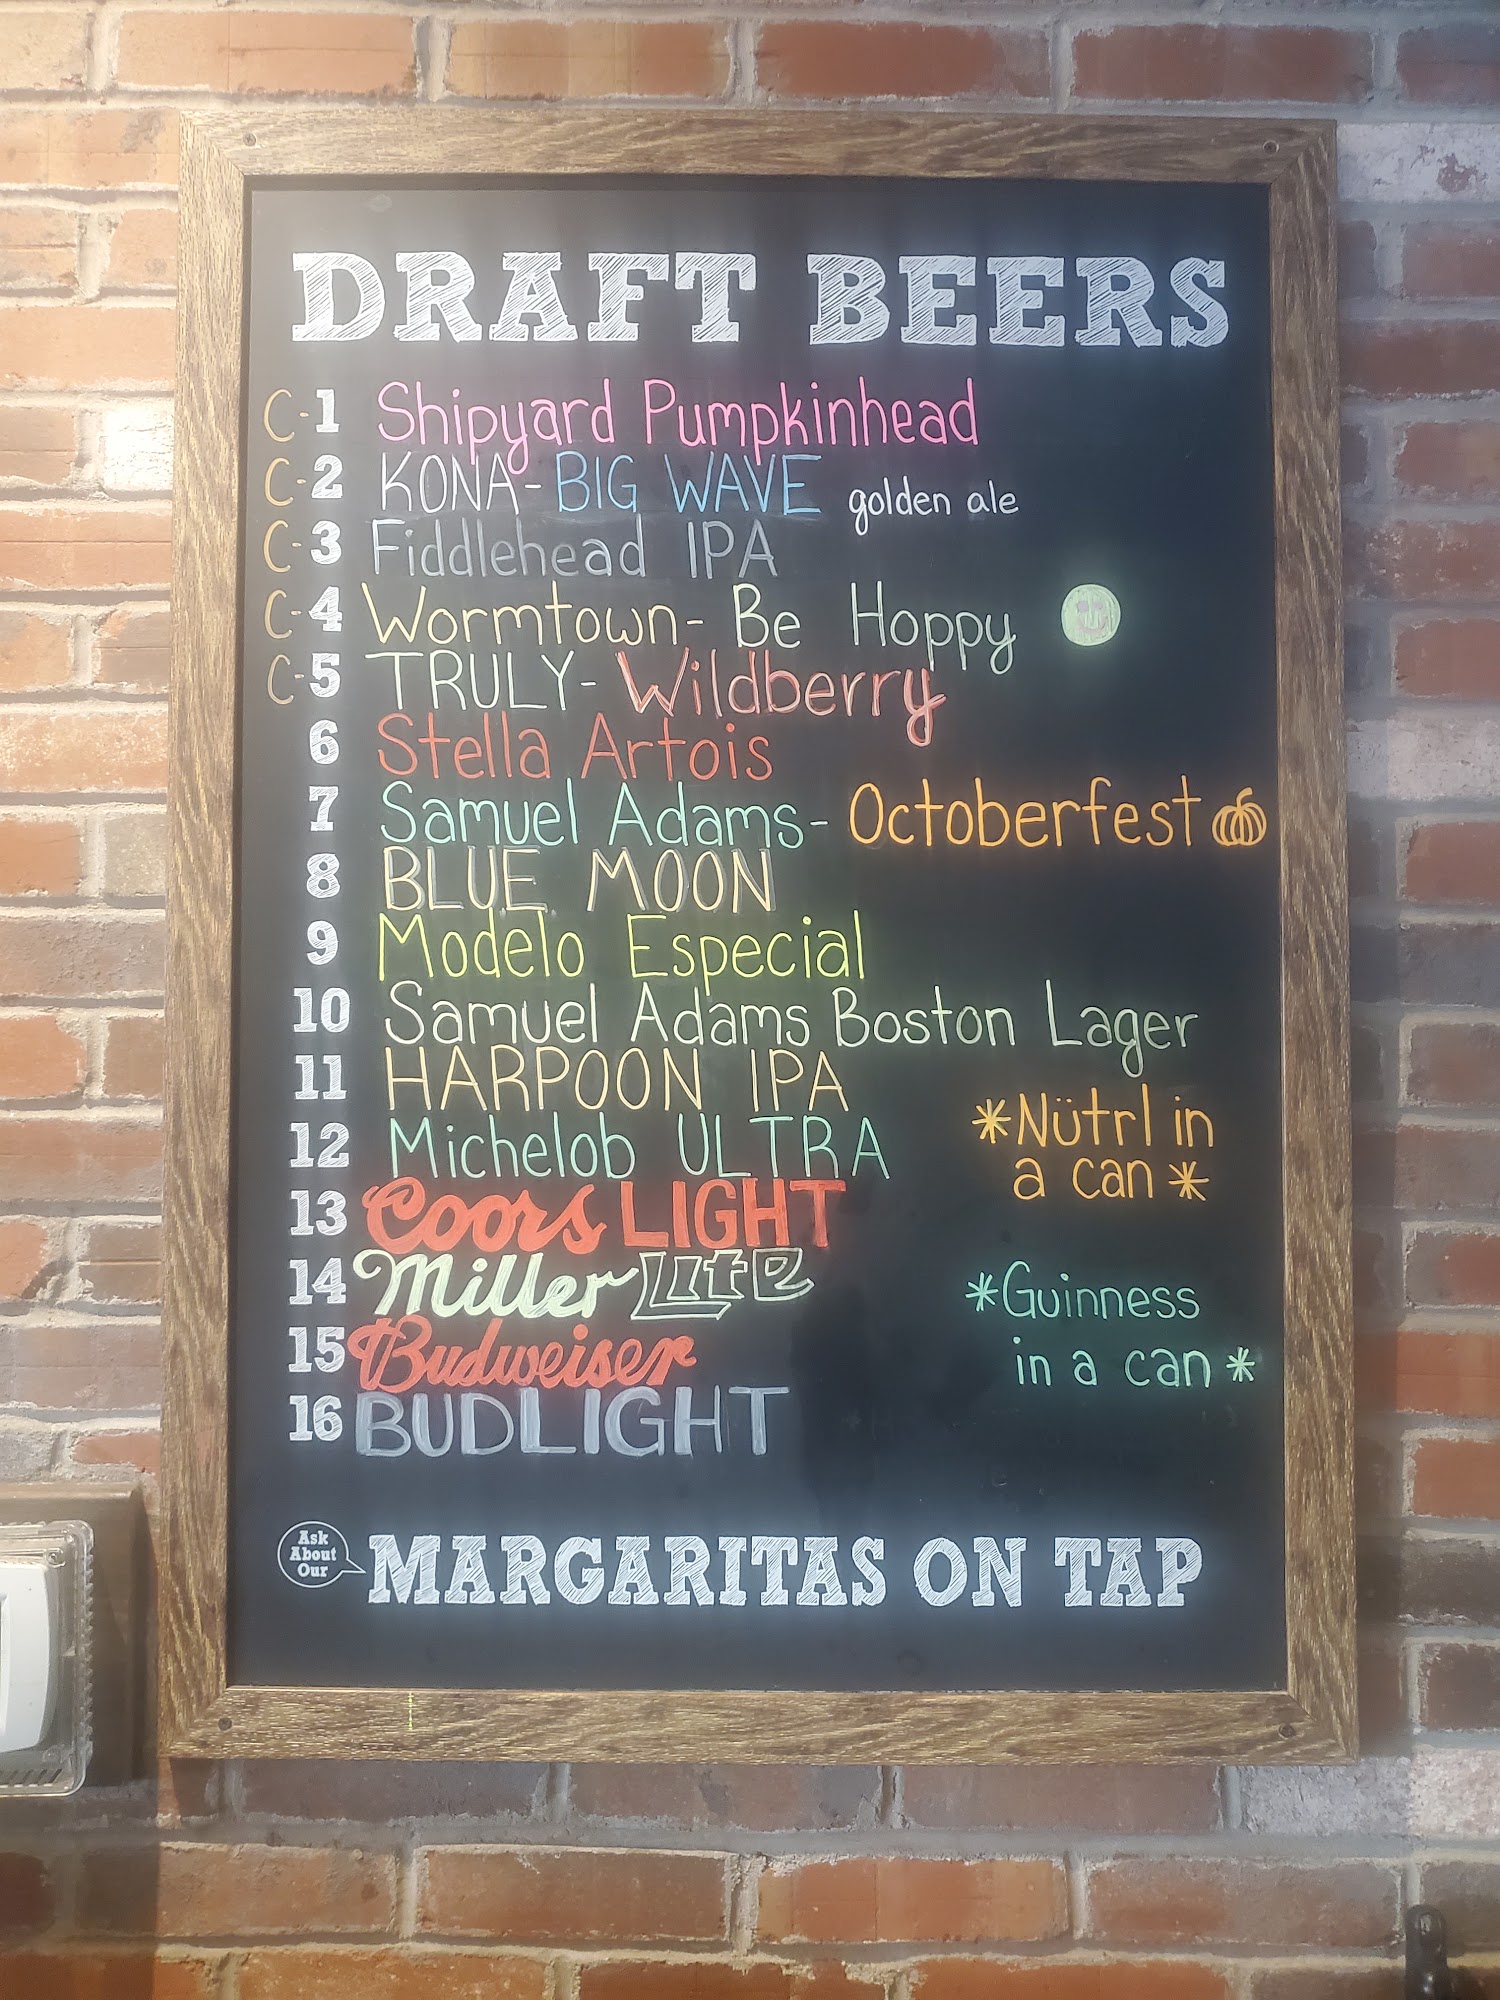 DRAFT BEERS
C-1 Shipyard Pumpkinhead
C-2 KONA-BIG WAVE golden ale
C-3 Fiddlehead IPA
C-4 Wormtown-Be Hoppy
C-5 TRULY-Wildberry
6 Stella Artois
7 Samuel Adams-Octoberfest
8 BLUE MOON
9 Modelo Especial
10 Samuel Adams Boston Lager
11 HARPOON IPA
12 Michelob ULTRA
*Nütrl in
a can*
13 Coors LIGHT
14 Miller Lite
*Guinness
in a can*
15 Budweiser
16 BUDLIGHT
Ask
About
Our
MARGARITAS ON TAP